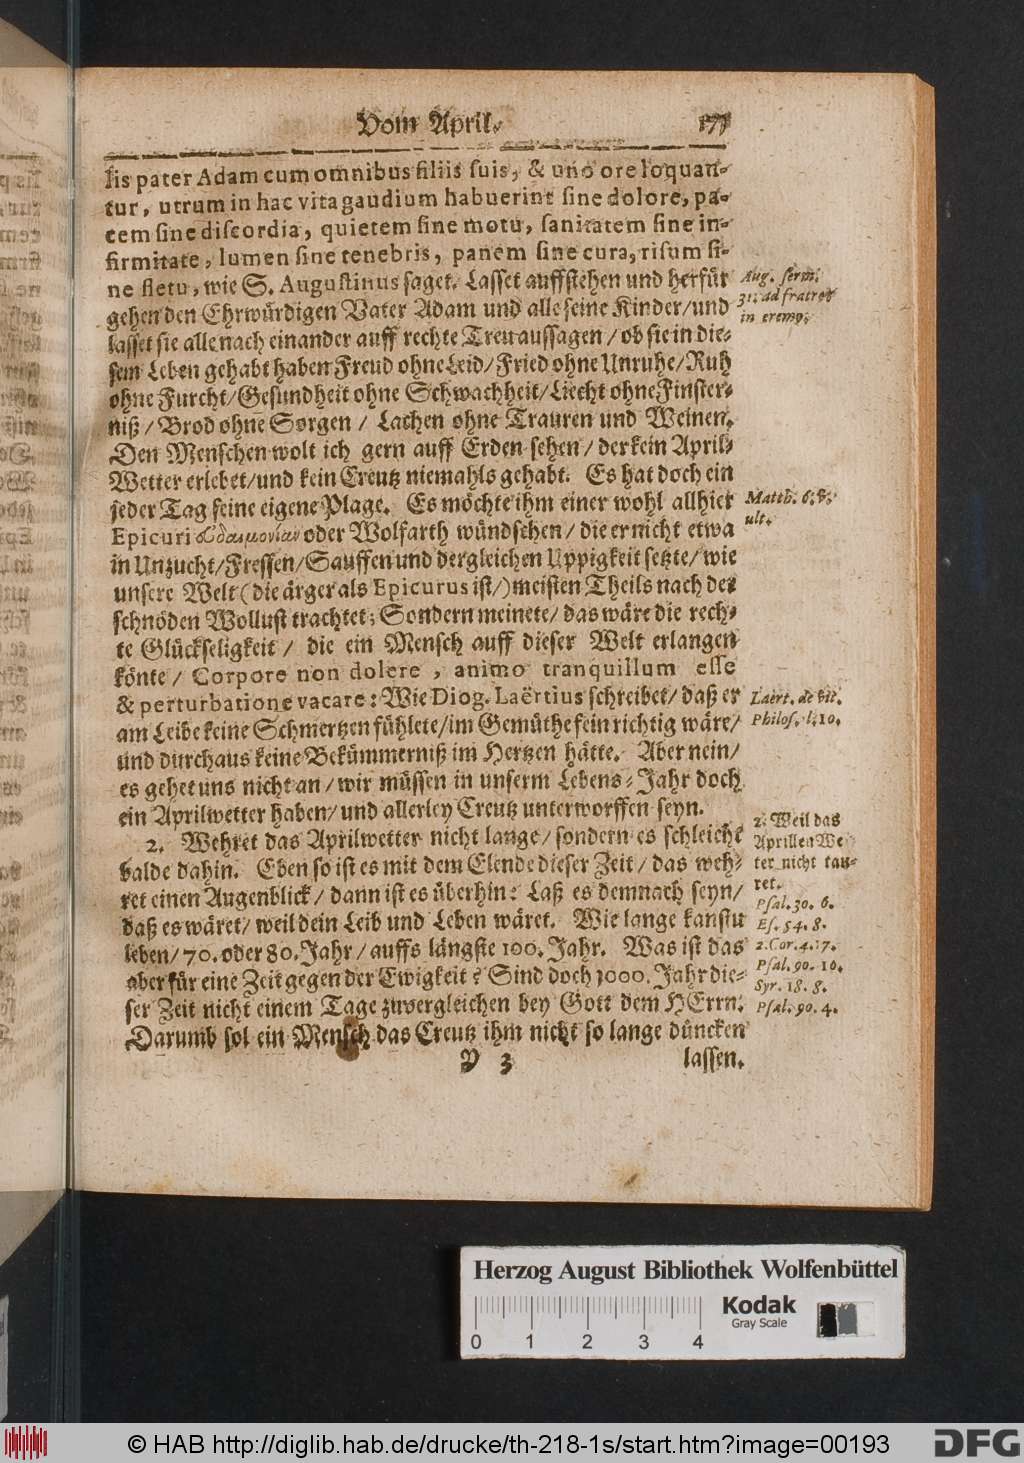 Vom April. 177
lis pater Adam cum omnibus filiis suis, & uno ore loquan-
tur, utrum in hac vita gaudium habuerint sine dolore, pa-
cem sine discordia, quietem sine motu, sanitatem sine in-
firmitate, lumen sine tenebris, panem sine cura, risum si-
ne fletu, wie S. Augustinus saget. Lasset auffstehen und herfür
gehen den Ehrwürdigen Vater Adam und alle seine Kinder/und
lasset sie alle nach einander auff rechte Treu aussagen/ob sie in die-
sem Leben gehabt haben Freud ohne Leid/Fried ohne Unruhe/Ruh
ohne Furcht/Gesundheit ohne Schwachheit/Liecht ohne Finster-
niß/Brod ohne Sorgen/ Lachen ohne Trauren und Weinen.
Den Menschen wolt ich gern auff Erden sehen/der kein April-
Wetter erlebet/und kein Creutz niemahls gehabt. Es hat doch ein
jeder Tag seine eigene Plage. Es möchte ihm einer wohl allhier
Epicuri oder Wolfarth wündschen/die er nicht etwa
in Unzucht/Fressen/Sauffen und dergleichen Uppigkeit setzte/wie
unsere Welt (die ärger als Epicurus ist/) meisten Theils nach der
schnöden Wollust trachtet; Sondern meinete/das wäre die rech-
te Glückseligkeit/ die ein Mensch auff dieser Welt erlangen
könte/ Corpore non dolere, animo tranquillum esse
& perturbatione vacare: Wie Diog. Laërtius schreibet/daß er
am Leibe keine Schmertzen fühlete/im Gemüthe fein richtig wäre/
und durchaus keine Bekümmerniß im Hertzen hätte. Aber nein/
es gehet uns nicht an/wir müssen in unserm Lebens-Jahr doch
ein Aprilwetter haben/und allerley Creutz unterworffen seyn.
2. Wehret das Aprilwetter nicht lange/sondern es schleicht
balde dahin. Eben so ist es mit dem Elende dieser Zeit/das weh-
ret einen Augenblick/dann ist es überhin: Laß es demnach seyn/
daß es wäret/weil dein Leib und Leben wäret. Wie lange kanstu
leben/70. oder 80. Jahr/auffs längste 100. Jahr. Was ist das
aber für eine Zeit gegen der Ewigkeit? Sind doch 1000. Jahr die-
ser Zeit nicht einem Tage zuvergleichen bey Gott dem HErrn.
Darumb sol ein Mensch das Creutz ihm nicht so lange düncken
P 3 lassen.
Aug. serm.
31. ad fratres
in eremo.
Matth. 6. v.
ult.
Laërt. de vit.
Philos. l. 10.
2. Weil das
Aprillen We-
ter nicht tau-
ret.
Psal. 30. 6.
Es. 54. 8.
2. Cor. 4. 17.
Psal. 90. 10.
Syr. 18. 8.
Psal. 90. 4.
Herzog August Bibliothek Wolfenbüttel
Kodak
Gray Scale
0 1 2 3 4
© HAB http://diglib.hab.de/drucke/th-218-1s/start.htm?image=00193
DFG